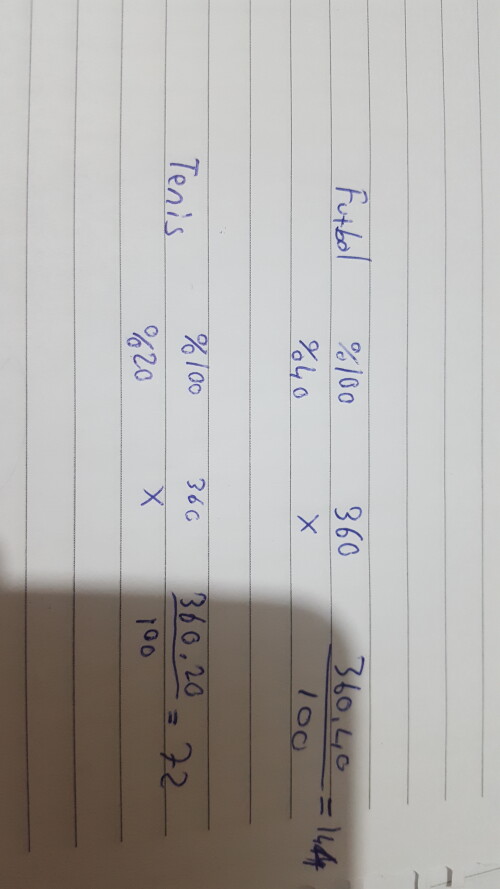 Futbol %100 360 360.40
%40 X 100 = 144
Tenis %100 360 360.20
%20 X 100 = 72